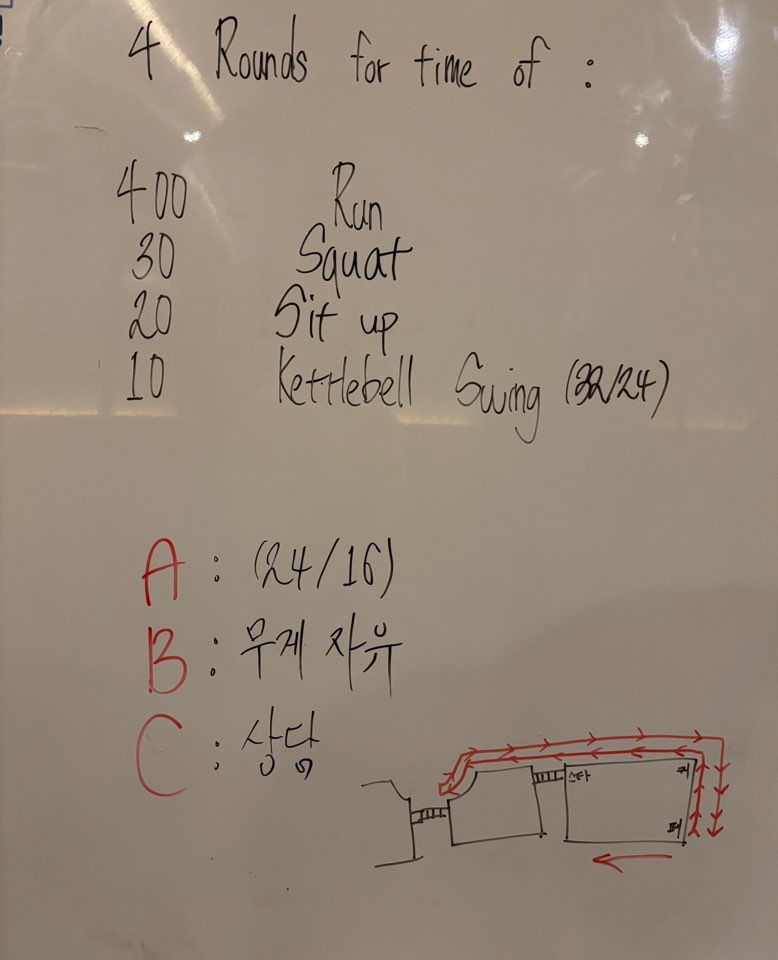 4 Rounds for time of :
400 Run
30 Squat
20 Sit up
10 Kettlebell Swing (32/24)
A : (24/16)
B : 무게 자유
C : 상담
스타
커